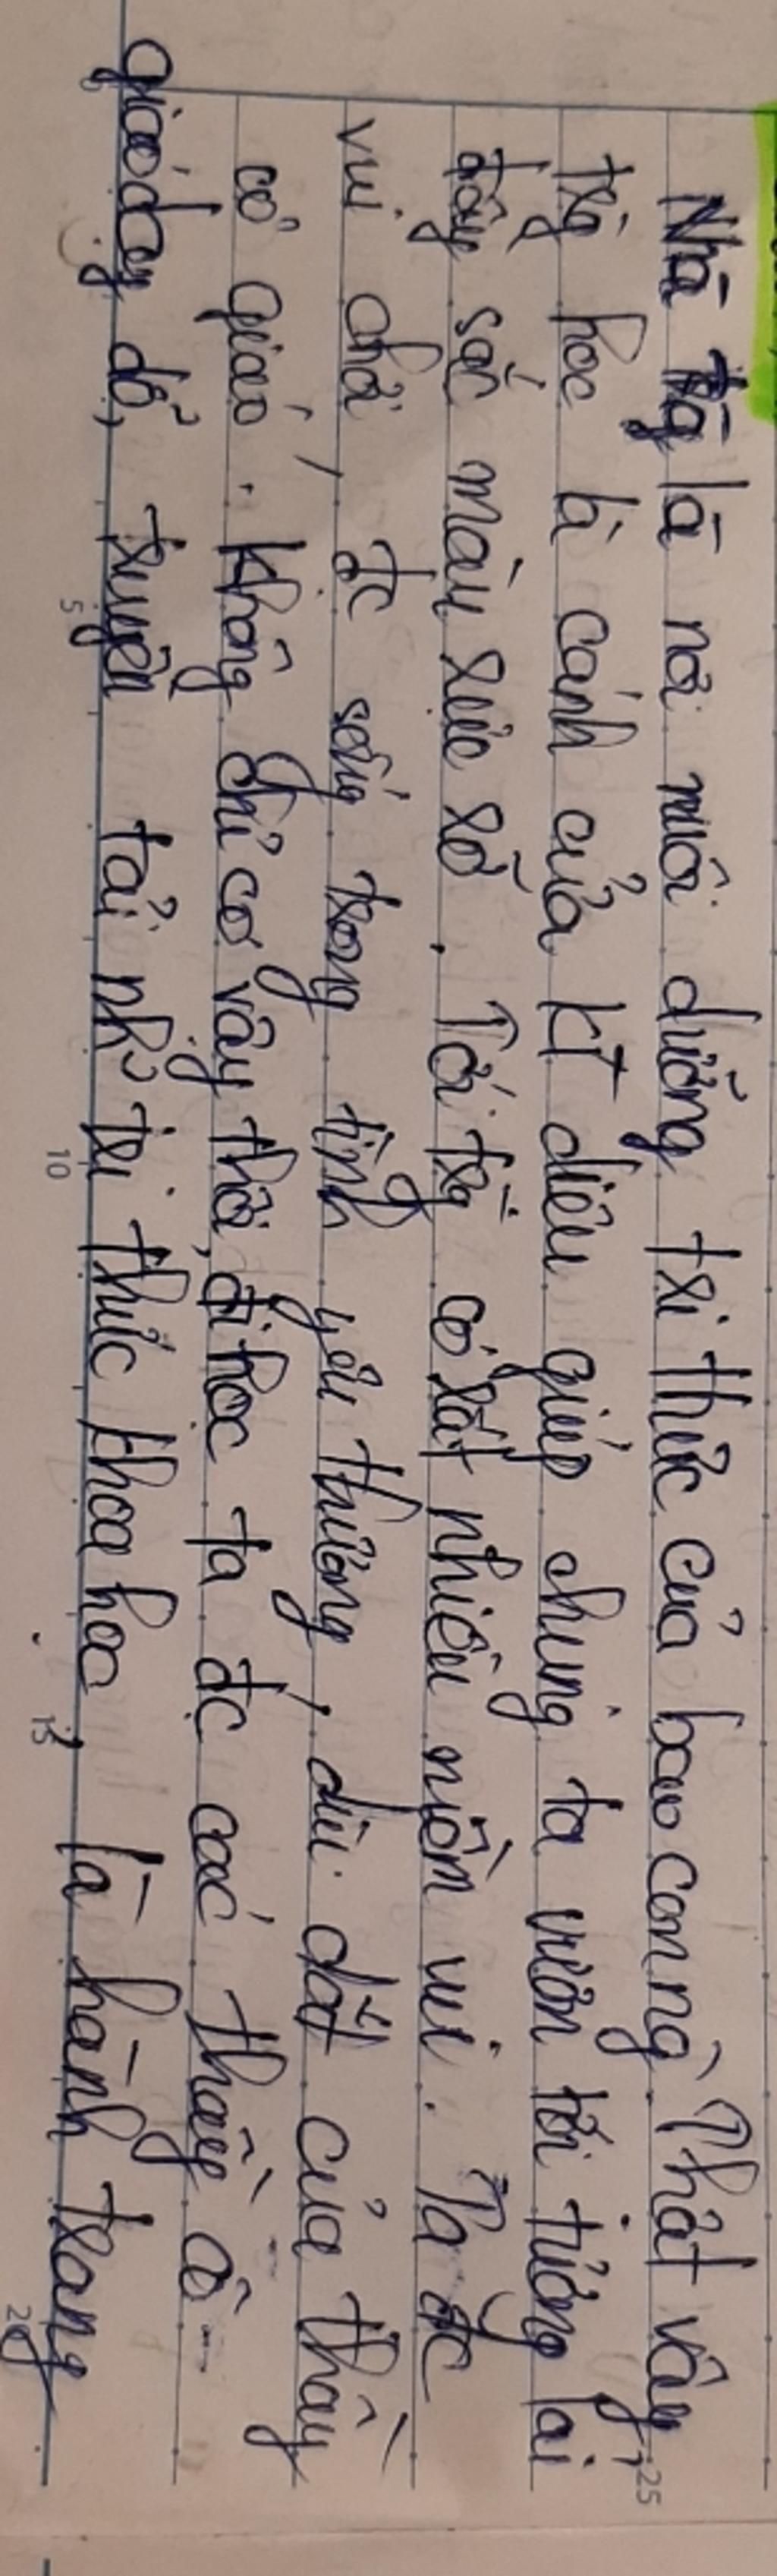 Nhà trg là nơi nuôi dưỡng tri thức của bao con ng. Thật vậy,
trg học là cánh cửa kì diệu giúp chúng ta vươn tới tương lai
đầy sắc màu rực rỡ. Tới trg có rất nhiều niềm vui. Ta đc
vui chơi, đc sống trong tình yêu thương, dìu dắt của thầy
cô giáo. Không chỉ có vậy thôi, đi học ta đc các thầy cô
giáo dạy dỗ, truyền tải như tri thức khoa học, là hành trang
5
10
15
20
25